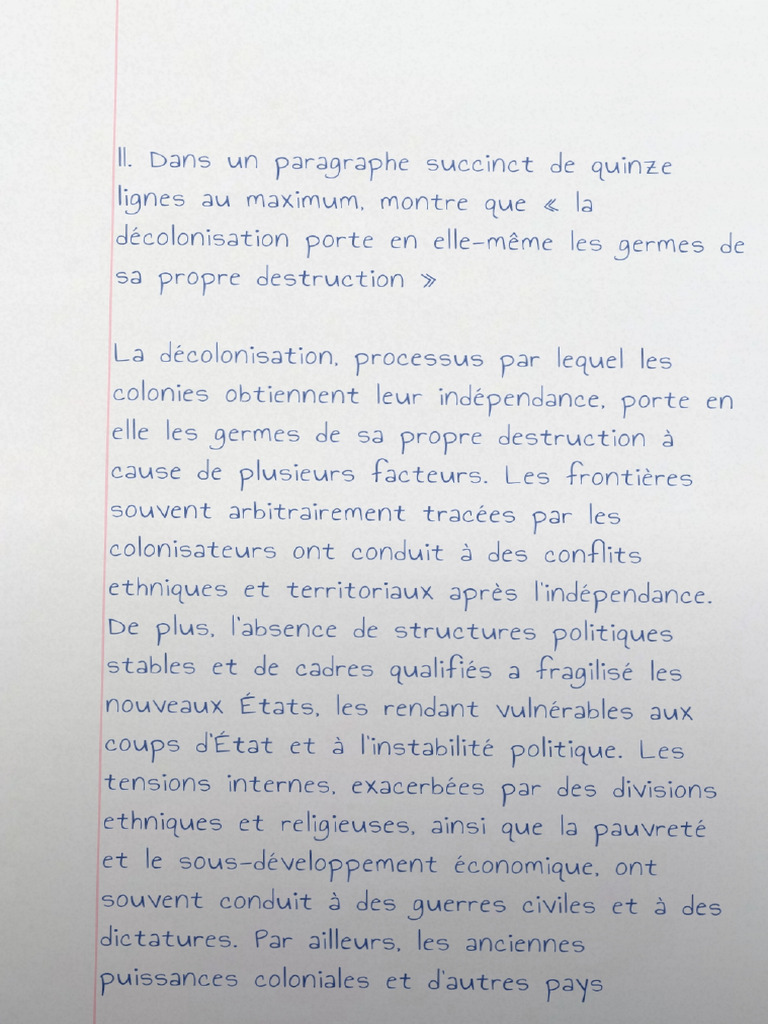 II. Dans un paragraphe succinct de quinze
lignes au maximum, montre que « la
décolonisation porte en elle-même les germes de
sa propre destruction »
La décolonisation, processus par lequel les
colonies obtiennent leur indépendance, porte en
elle les germes de sa propre destruction à
cause de plusieurs facteurs. Les frontières
souvent arbitrairement tracées par les
colonisateurs ont conduit à des conflits
ethniques et territoriaux après l'indépendance.
De plus, l'absence de structures politiques
stables et de cadres qualifiés a fragilisé les
nouveaux États, les rendant vulnérables aux
coups d'État et à l'instabilité politique. Les
tensions internes, exacerbées par des divisions
ethniques et religieuses, ainsi que la pauvreté
et le sous-développement économique, ont
souvent conduit à des guerres civiles et à des
dictatures. Par ailleurs, les anciennes
puissances coloniales et d'autres pays